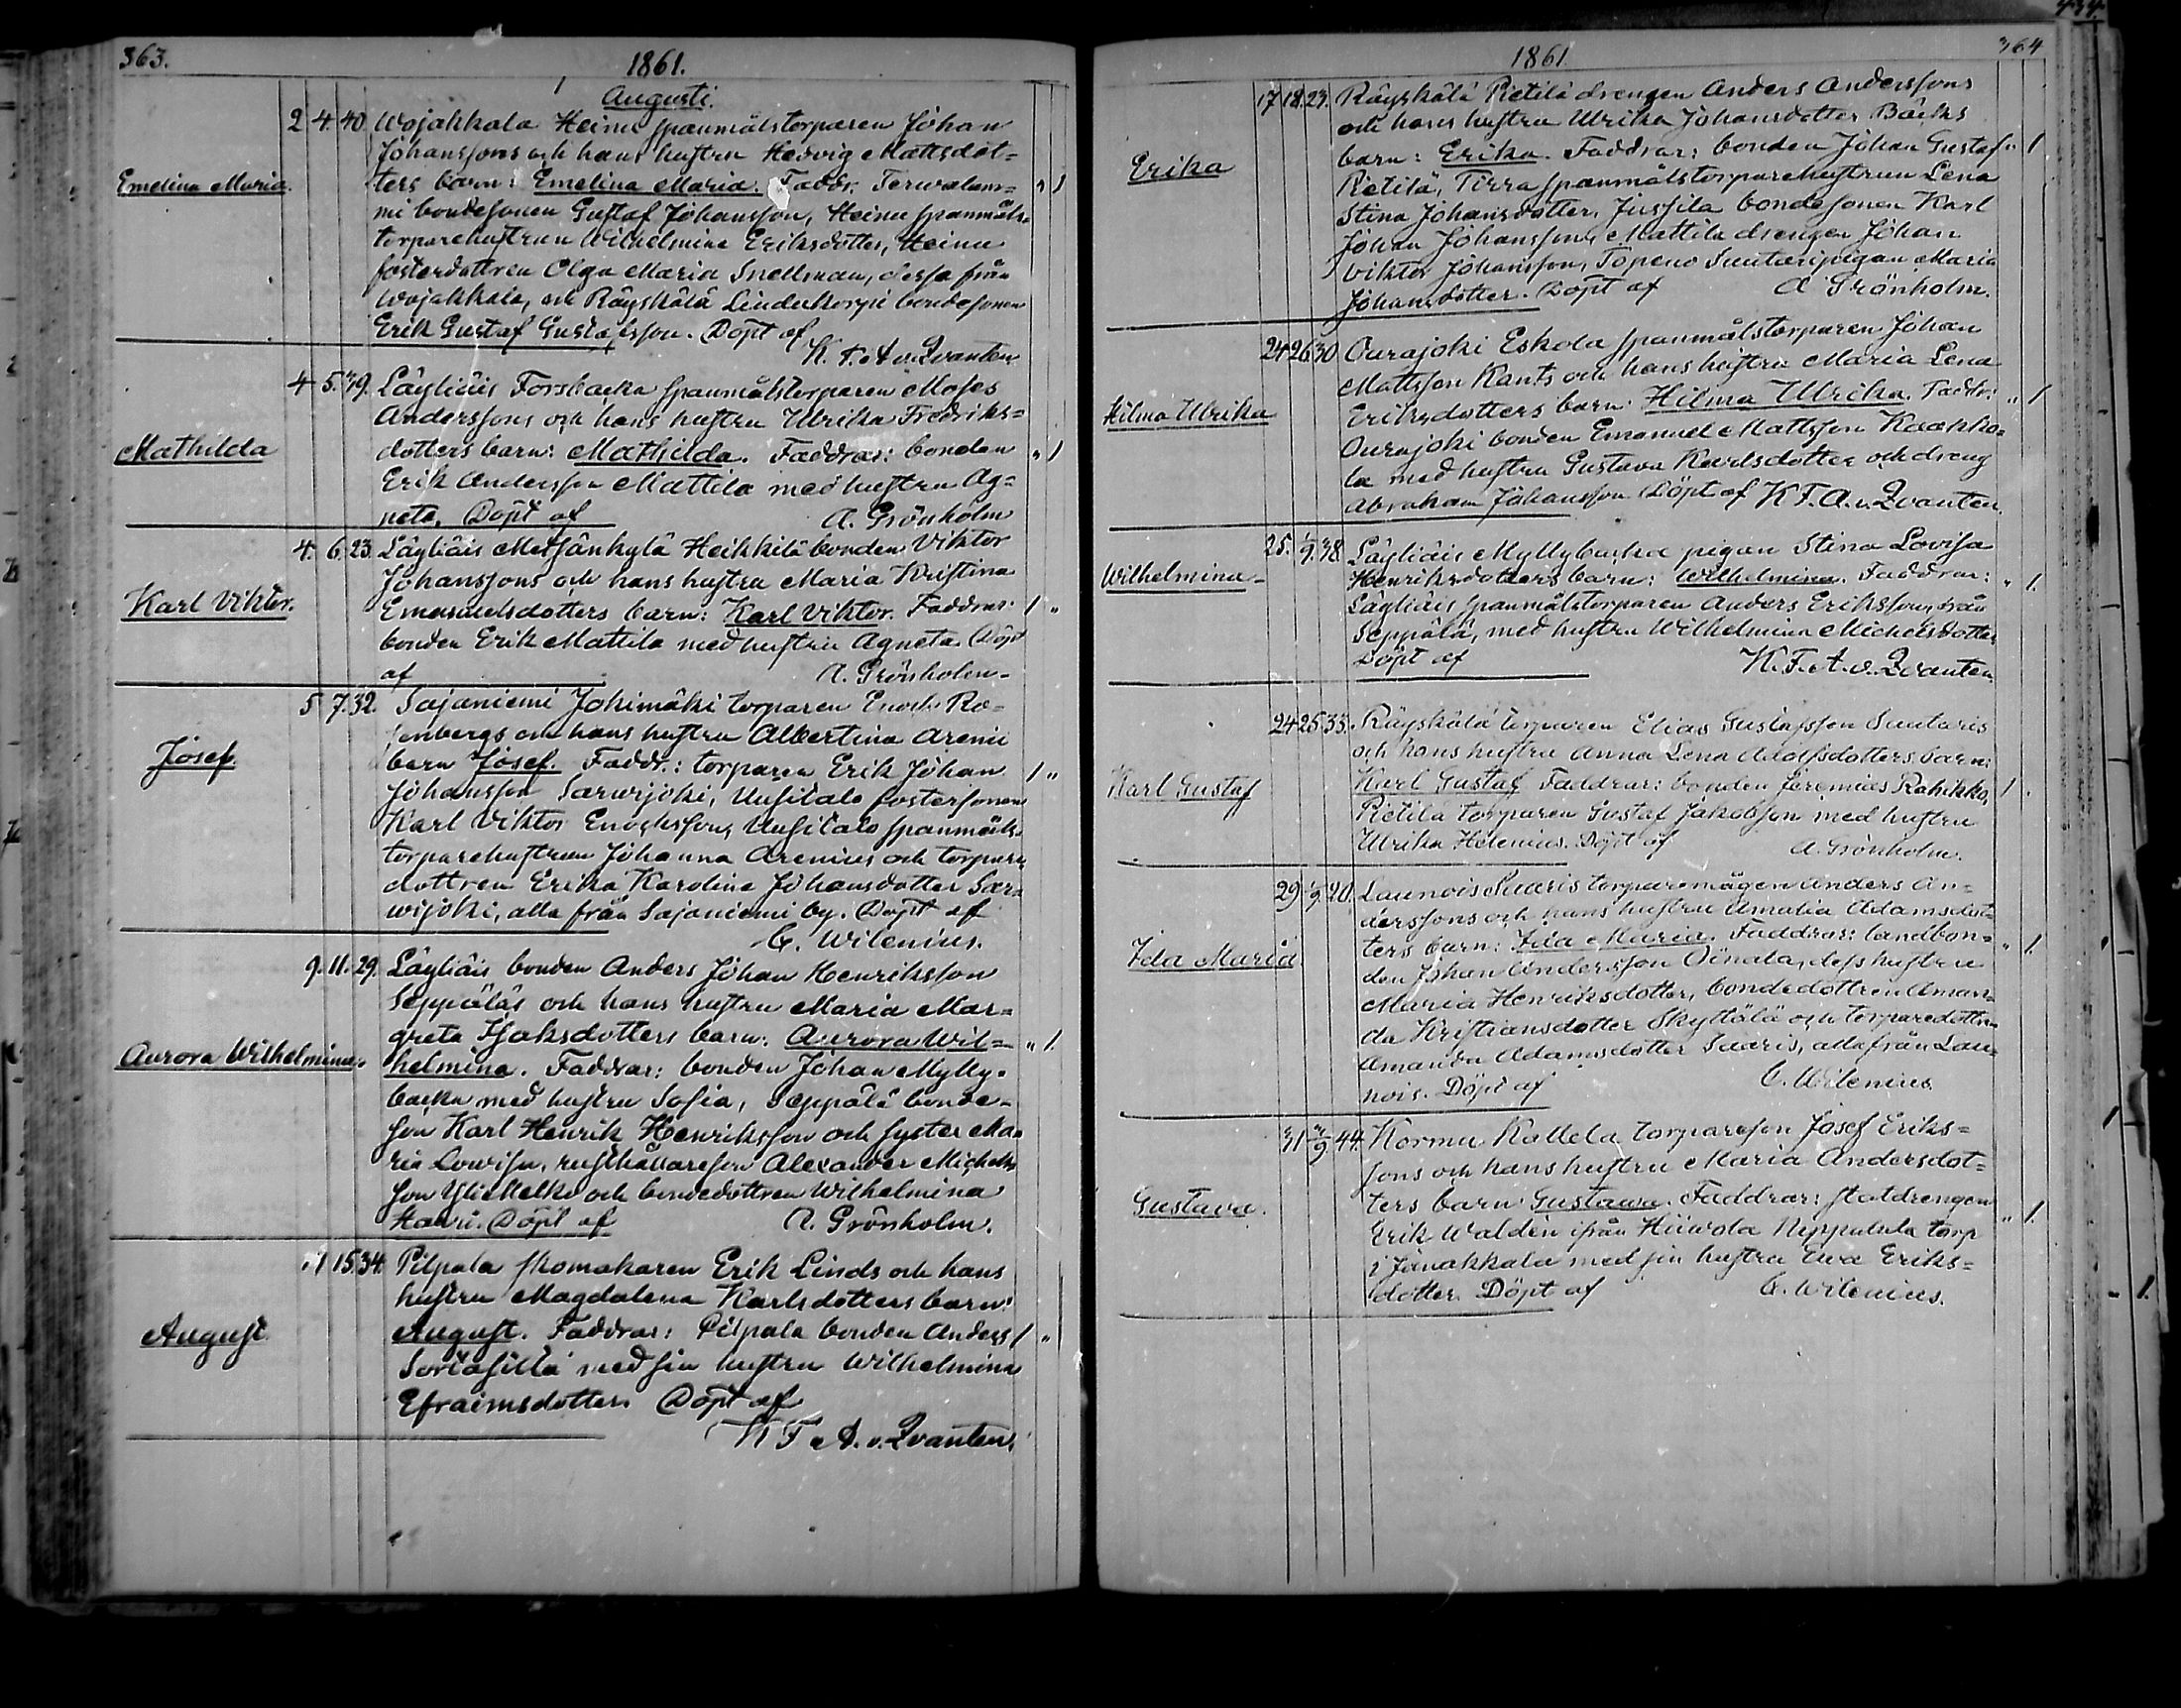 363.
1861.
Augusti.
2 4. 40. Wojakkala Heinu spanmålstorparen Johan
Johanssons och hans hustru Hedvig Mattsdot=
Emelina Maria. ters barn: Emelina Maria. Faddr. Terwalam= " 1
mi bondesonen Gustaf Johansson, Heinu spanmåls=
torparehustrun Wilhelmina Eriksdotter, Heinu
fosterdottren Olga Maria Snellman, dessa från
Wojakkala, och Räyskälä Linderkorpi bondesonen
Erik Gustaf Gustafsson. Döpt af
K. F. A v. Qvanten
4 5. 39. Läyliäis Forsbacka spanmålstorparen Moses
Anderssons och hans hustru Ulrika Fredriks=
Mathilda dotters barn: Mathilda. Faddrar: bonden " 1
Erik Andersson Mattila med hustru Ag=
neta. Döpt af A. Grönholm
4. 6. 23. Läyliäis Metsänkylä Heikkilä bonden Viktor
Johanssons och hans hustru Maria Kristina
Karl Viktor. Emanuelsdotters barn: Karl Viktor. Faddrar: 1 "
bonden Erik Mattila med hustru Agneta. Döpt
af A. Grönholm
5 7. 32. Sajaniemi Jokimäki torparen Enock Ro=
senbergs och hans hustru Albertina Arenii
Josef. barn Josef. Faddr.: torparen Erik Johan 1 "
Johansson Sarwijoki, Uusitalo fostersonen
Karl Viktor Enocksson, Uusitalo spanmåls
torparehustrun Johanna Arenius och torpare
dottren Erika Karolina Johansdotter Sar=
wijoki, alla från Sajaniemi by. Döpt af
C. Wilenius.
9. 11. 29. Läyliäis bonden Anders Johan Henriksson
Seppäläs och hans hustru Maria Mar=
greta Isaksdotters barn: Aurora Wil= " 1.
Aurora Wilhelmina. helmina. Faddrar: bonden Johan Mylly=
backa med hustru Sofia, Seppälä bonde=
son Karl Henrik Henriksson och syster Ma=
ria Lowisa, rusthållareson Alexander Michels
son Ylimelko och bondedottren Wilhelmina
Hauru. Döpt af A. Grönholm.
11 15. 34. Pilpala skomakaren Erik Linds och hans
hustru Magdalena Karlsdotters barn:
August. August. Faddrar: Pilpala bonden Anders 1 "
Sortosilta med sin hustru Wilhelmina
Efraimsdotter. Döpt af
K F A. v. Qvanten.
364
1861
17 18. 23. Räyskälä Pietilä drengen Anders Anderssons
och hans hustru Ulrika Johansdotter Bäcks
Erika barn: Erika. Faddrar: bonden Johan Gustaf " 1
Pietilä, Tirra spanmålstorparehustrun Lena
Stina Johansdotter, Jussila bondesonen Karl
Johan Johansson, Mattila drengen Johan
Viktor Johansson, Topeno Suutaripigan Maria
Johansdotter. Döpt af A Grönholm.
24 26 30 Ourajoki Eskola spanmålstorparen Johan
Mattsson Kants och hans hustru Maria Lena
Hilma Ulrika Eriksdotters barn: Hilma Ulrika. Faddr: " 1
Ourajoki bonden Emanuel Mattsson Kaakko=
la med hustru Gustava Karlsdotter och dreng
Abraham Johansson Döpt af K F. A. v. Qvanten.
25. 1/9. 38 Läyliäis Myllybacka pigan Stina Lovisa
Wilhelmina Henriksdotters barn: Wilhelmina. Faddrar: " 1.
Läyliäis spanmålstorparen Anders Eriksson, från
Seppälä, med hustru Wilhelmina Michelsdotter
Döpt af K. F. A. v. Qvanten.
24 25 33. Räyskälä torparen Elias Gustafsson Suutaris
och hans hustru Anna Lena Adolfsdotters barn:
Karl Gustaf Karl Gustaf Faddrar: bonden Jeremias Rahikko, 1 "
Pietilä torparen Gustaf Jakobsson med hustru
Ulrika Helenius. Döpt af A. Grönholm.
29 1/9. 40. Launois Suaris torparemågen Anders An=
derssons och hans hustru Amalia Adamsdot=
Ida Maria ters barn: Ida Maria. Faddrar: landbon= " 1.
den Johan Andersson Oinala, dess hustru
Maria Henriksdotter, bondedottren Aman=
da Kristiansdotter Skyttälä och torparedottren
Amanda Adamsdotter Suaris, alla från Lau=
nois. Döpt af C. Wilenius.
31 /9 44. Kormu Kallela torpareson Josef Eriks=
sons och hans hustru Maria Andersdot=
Gustava. ters barn Gustawa. Faddrar: statdrengen " 1.
Erik Walden ifrån Hiiwola torp
i Janakkala med sin hustru Ewa Eriks=
dotter. Döpt af C. Wilenius.